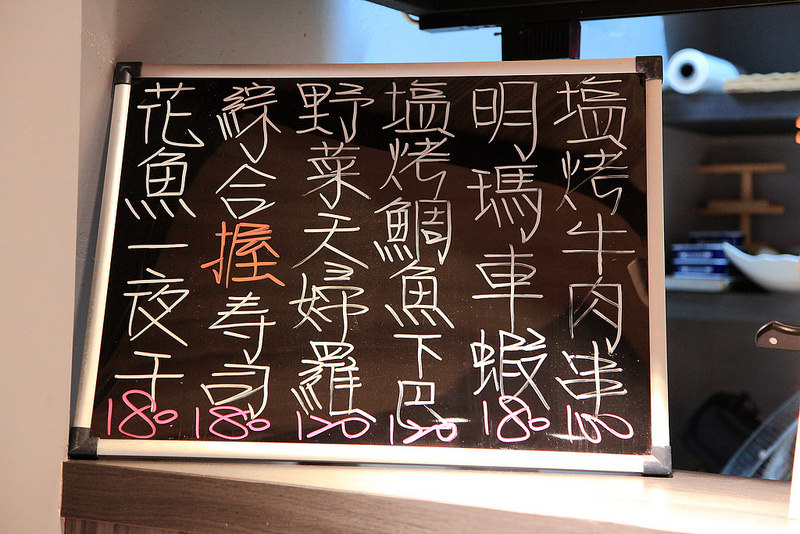 塩烤牛肉串 100
明瑪車蝦 180
塩烤鯛魚下巴 120
野菜天婦羅 120
綜合握寿司 180
花魚一夜干 180